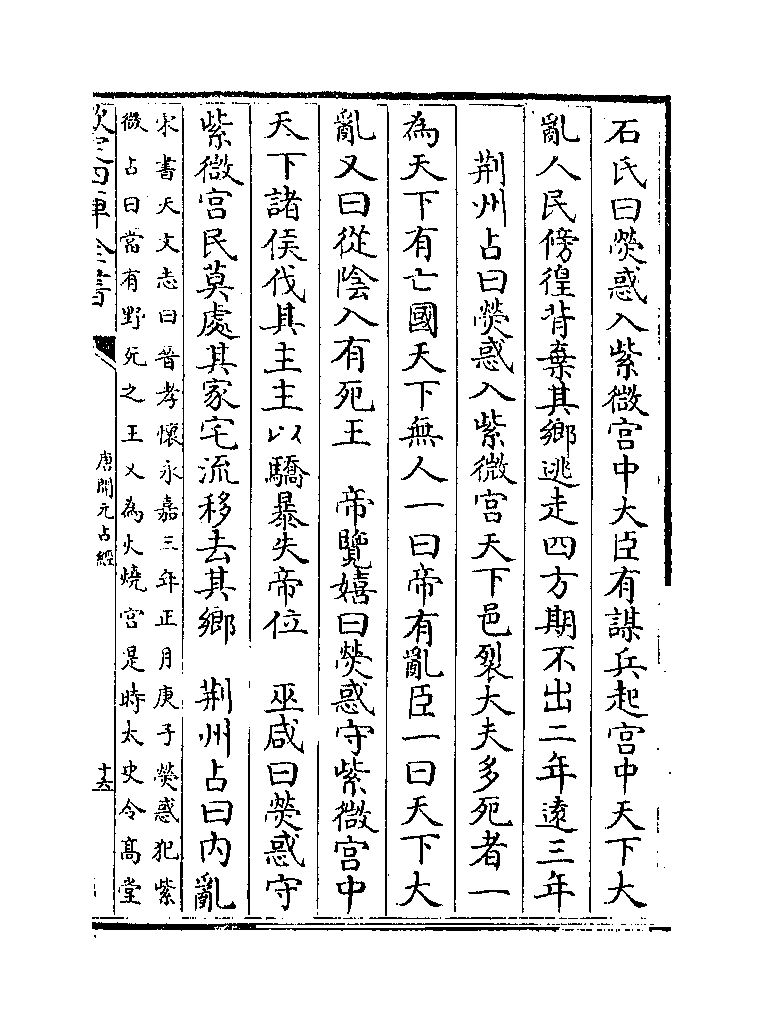 石氏曰熒惑入紫微宫中大臣有謀兵起宫中天下大
亂人民傍徨背棄其鄉逃走四方期不出二年遠三年
荆州占曰熒惑入紫微宫天下邑裂大夫多死者一
為天下有亡國天下無人一曰帝有亂臣一曰天下大
亂又曰從陰入有死王　帝覽嬉曰熒惑守紫微宫中
天下諸侯伐其主主以驕暴失帝位　巫咸曰熒惑守
紫微宫民莫處其家宅流移去其鄉　荆州占曰内亂
宋書天文志曰晉孝懷永嘉三年正月庚子熒惑犯紫
微占曰當有野死之王又為火燒宫是時太史令髙堂
欽定四庫全書
唐開元占經
十六